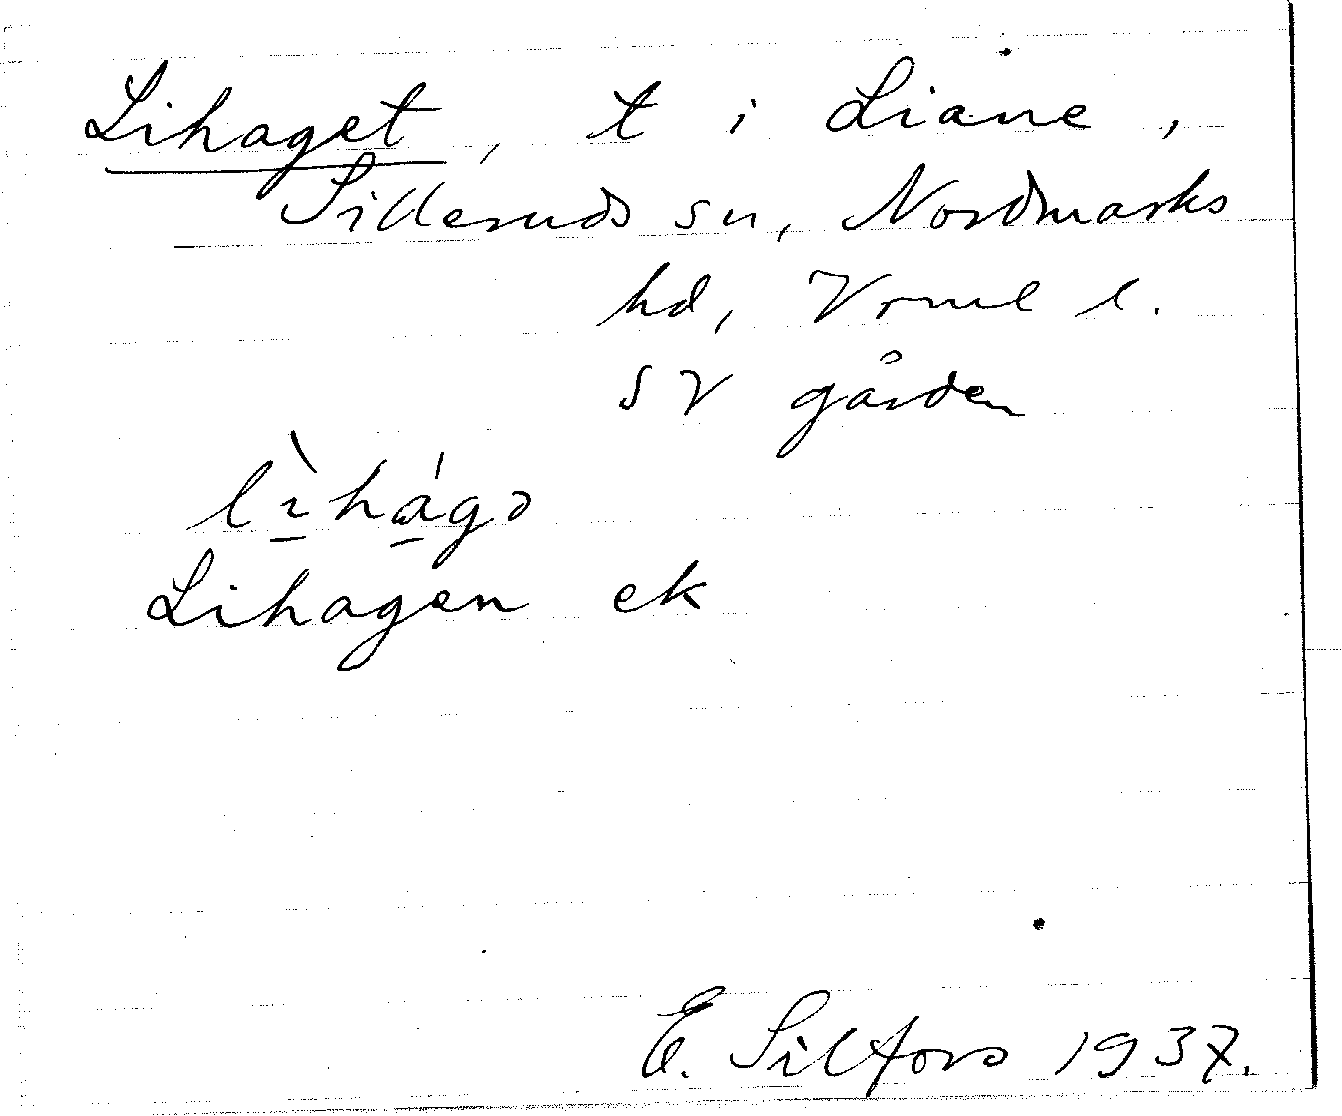 Lihaget, t i Liane,
Silleruds sn, Nordmarks
hd, Vrml l.
SV gården
lìhágə
Lihagen ek
E. Silfors 1937.